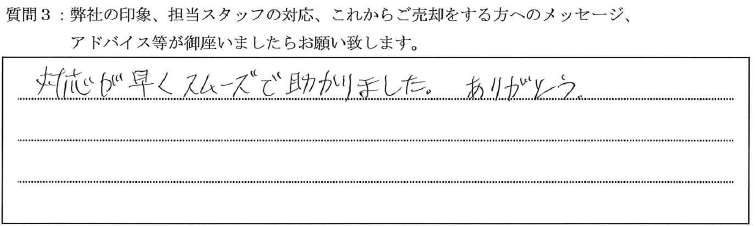 質問３：弊社の印象、担当スタッフの対応、これからご売却をする方へのメッセージ、
アドバイス等が御座いましたらお願い致します。
対応が早くスムーズで助かりました。 ありがとう。